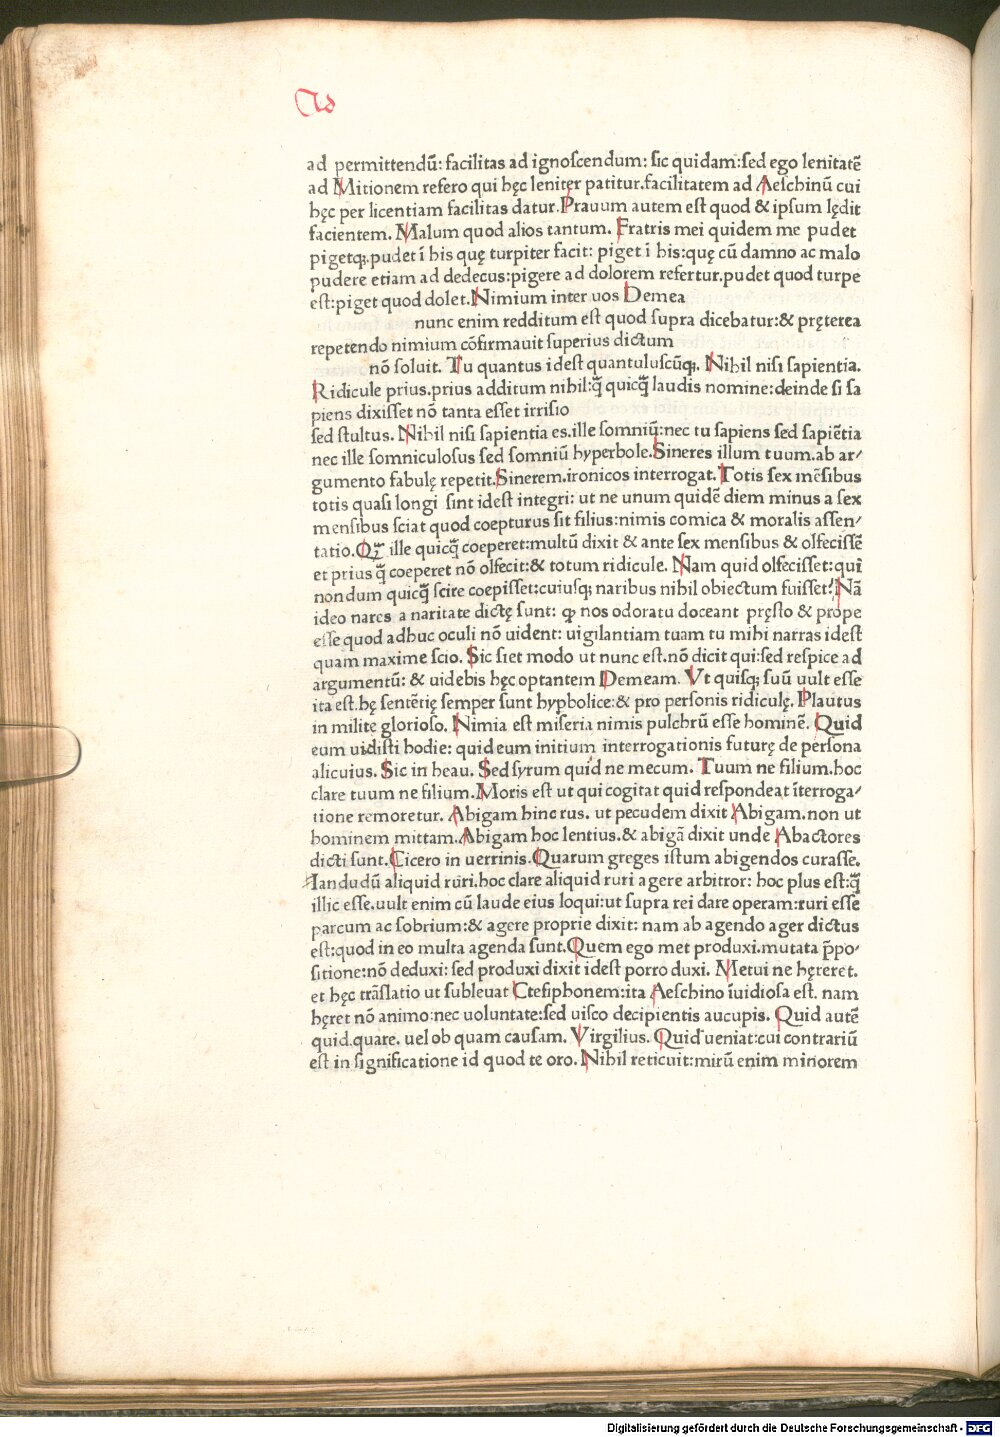 ad permittendū: facilitas ad ignoſcendum: ſic quidam:ſed ego lenitatē
ad Mitionem refero qui hęc leniter patitur.facilitatem ad Aeſchinū cui
hęc per licentiam facilitas datur.Prauum autem eſt quod & ipſum lędit
facientem. Malum quod alios tantum. Fratris mei quidem me pudet
pigetqꝫ.pudet ī his quę turpiter facit: piget ī his:quę cū damno ac malo
pudere etiam ad dedecus:pigere ad dolorem refertur.pudet quod turpe
eſt:piget quod dolet.Nimium inter uos Demea
nunc enim redditum eſt quod ſupra dicebatur:& pręterea
repetendo nimium cōfirmauit ſuperius dictum
nō ſoluit. Tu quantus ideſt quantuluſcūqꝫ. Nihil niſi ſapientia.
Ridicule prius.prius additum nihil:q̄ quicq̄ laudis nomine:deinde ſi ſa
piens dixiſſet nō tanta eſſet irriſio
ſed ſtultus. Nihil niſi ſapientia es.ille ſomniū:nec tu ſapiens ſed ſapiētia
nec ille ſomniculoſus ſed ſomniū hyperbole.Sineres illum tuum.ab ar/
gumento fabulę repetit.Sinerem.ironicos interrogat.Totis ſex mēſibus
totis quaſi longi ſint ideſt integri: ut ne unum quidē diem minus a ſex
menſibus ſciat quod coepturus ſit filius:nimis comica & moralis aſſen/
tatio.Q ille quicq̄ coeperet:multū dixit & ante ſex menſibus & olfeciſſē
et prius q̄ coeperet nō olfecit:& totum ridicule. Nam quid olfeciſſet:qui
nondum quicq̄ ſcire coepiſſet:cuiuſqꝫ naribus nihil obiectum fuiſſet? Nā
ideo nares a naritate dictę ſunt: ꝙ nos odoratu doceant pręſto & prope
eſſe quod adhuc oculi nō uident: uigilantiam tuam tu mihi narras ideſt
quam maxime ſcio. Sic ſiet modo ut nunc eſt.nō dicit qui:ſed reſpice ad
argumentū: & uidebis hęc optantem Demeam. Vt quiſqꝫ ſuū uult eſſe
ita eſt.hę ſentētię ſemper ſunt hypbolice:& pro perſonis ridiculę. Plautus
in milite glorioſo. Nimia eſt miſeria nimis pulchrū eſſe hominē. Quid
eum uidiſti hodie: quid eum initium interrogationis futurę de perſona
alicuius. Sic in heau. Sed ſyrum quid ne mecum. Tuum ne filium.hoc
clare tuum ne filium.Moris eſt ut qui cogitat quid reſpondeat īterroga/
tione remoretur. Abigam hinc rus. ut pecudem dixit Abigam.non ut
hominem mittam.Abigam hoc lentius.& abigā dixit unde Abactores
dicti ſunt.Cicero in uerrinis.Quarum greges iſtum abigendos curaſſe.
Iandudū aliquid ruri.hoc clare aliquid ruri agere arbitror: hoc plus eſt:q̄
illic eſſe.uult enim cū laude eius loqui:ut ſupra rei dare operam:ruri eſſē
parcum ac ſobrium:& agere proprie dixit: nam ab agendo ager dictus
eſt:quod in eo multa agenda ſunt.Quem ego met produxi.mutata p̄po/
ſitione:nō deduxi: ſed produxi dixit ideſt porro duxi. Metui ne hęreret.
et hęc trāſlatio ut ſubleuat Cteſiphonem:ita Aeſchino īuidioſa eſt. nam
hęret nō animo:nec uoluntate:ſed uiſco decipientis aucupis. Quid autē
quid.quare. uel ob quam cauſam. Virgilius. Quid ueniat:cui contrariū
eſt in ſignificatione id quod te oro. Nihil reticuit:mirū enim minorem
Digitalisierung gefördert durch die Deutsche Forschungsgemeinschaft - DFG